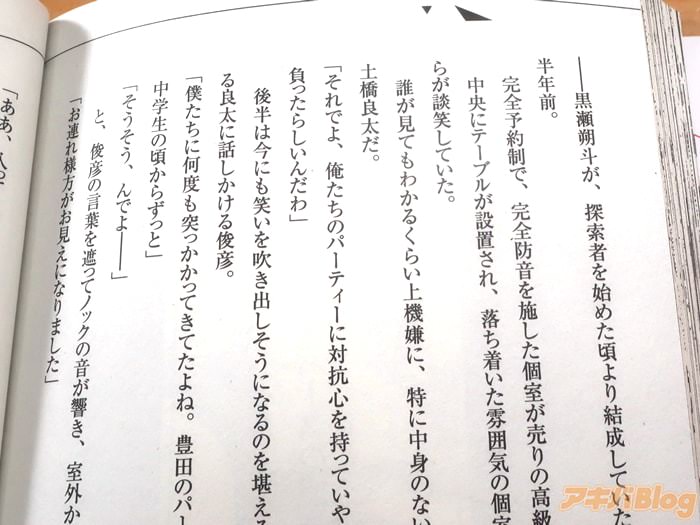 ――黒瀬朔斗が、探索者を始めた頃より結成していた
半年前。
完全予約制で、完全防音を施した個室が売りの高級
中央にテーブルが設置され、落ち着いた雰囲気の個室
らが談笑していた。
誰が見てもわかるくらい上機嫌に、特に中身のない
土橋良太だ。
「それでよ、俺たちのパーティーに対抗心を持っていや
負ったらしいんだわ」
後半は今にも笑いを吹き出しそうになるのを堪える
る良太に話しかける俊彦。
「僕たちに何度も突っかかってきてたよね。豊田のパー
中学生の頃からずっと」
「そうそう、んでよ――」
と、俊彦の言葉を遮ってノックの音が響き、室外か
「お連れ様方がお見えになりました」
「ああ、
アキバBlog